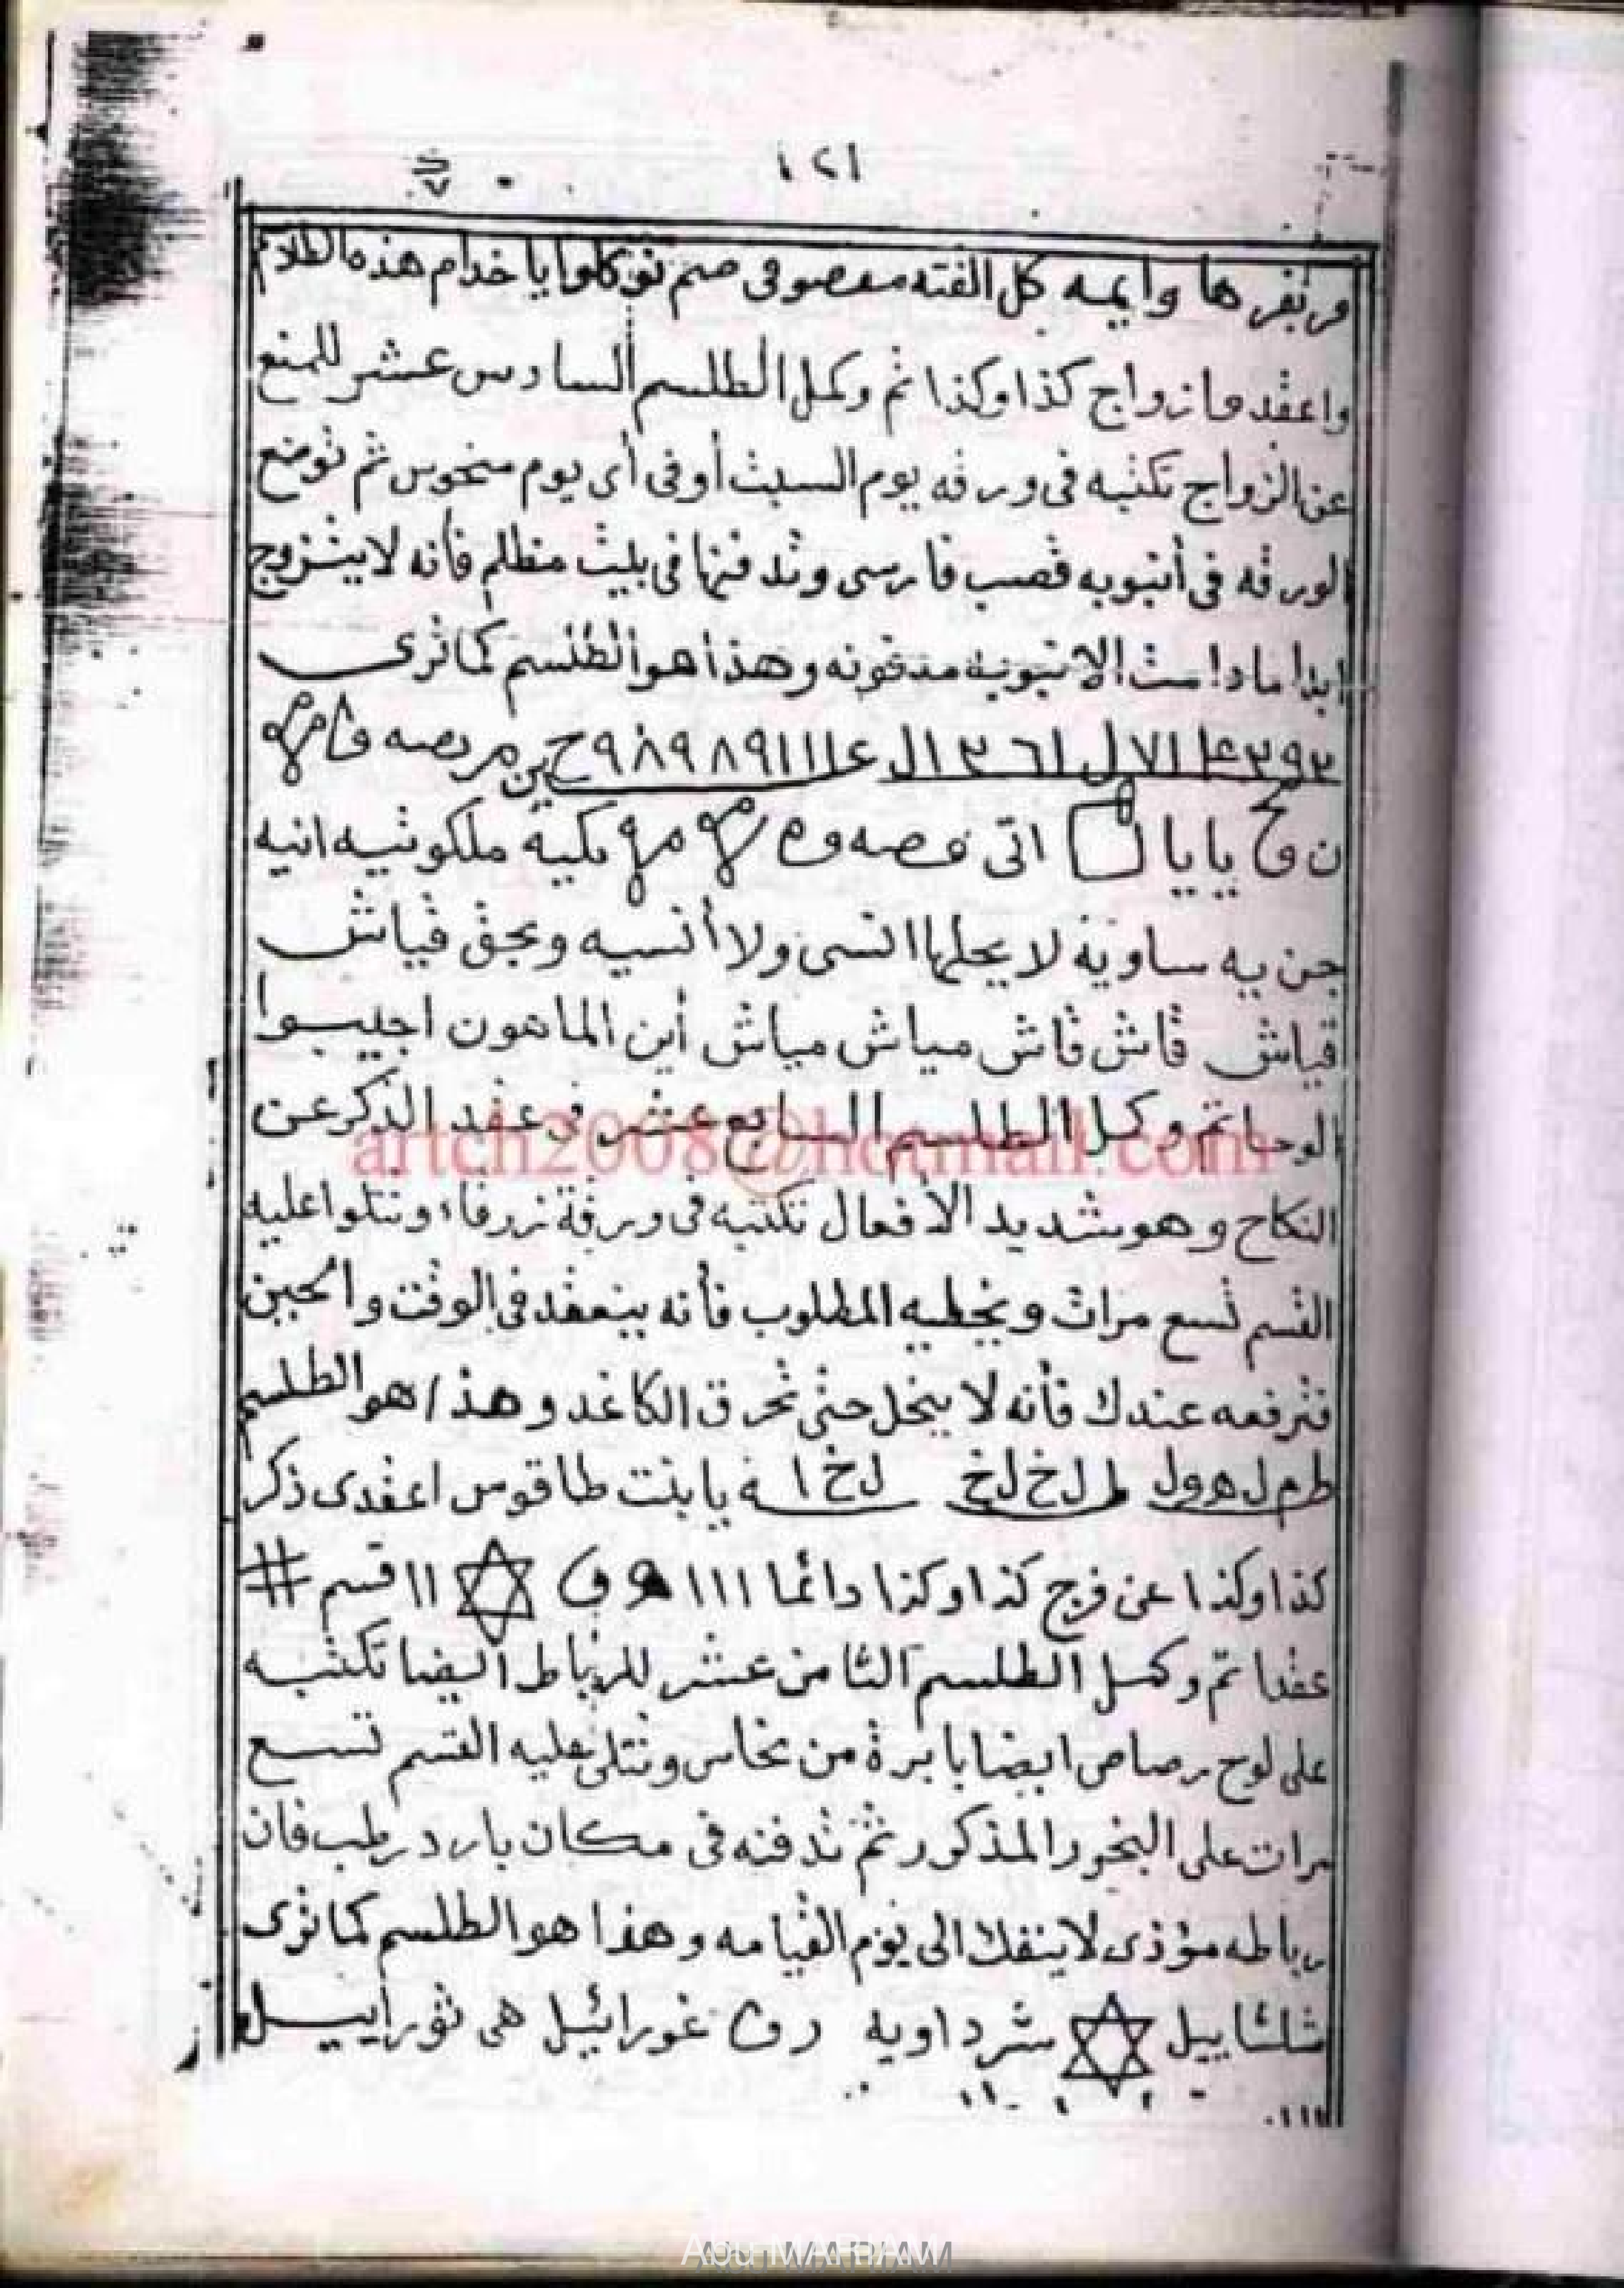 ١٢١
وايمه كل الفته معصوفى صم توكلوا يا خدام هذه الطلاسم
واعقدوا زواج كذا وكذا تم وكمل الطلسم السادس عشر للمنع
عن الزواج تكتبه فى ورقه يوم السبت أو فى أى يوم منحوس ثم توضع
الورقه فى أنبوبه قصب فارسى وتدفنها فى بيت مظلم فأنه لا يتزوج
ابدا ما دامت الانبوبه مدفونه وهذا هو الطلسم كما ترى
ح ٩٨٩٨٩١١١
يا يا اتى ملكوتيه انيه
جن يه ساويه لا يحلها انسى ولا أنسيه وبحق قياش
قياش قاش قاش مياش مياش أين الماهون اجيبوا
الوحا تم وكمل الطلسم السابع عشر فى عقد الذكر عن
النكاح وهو شديد الأفعال تكتبه فى ورقة زرقاء وتتلوا عليه
القسم تسع مرات ويخطيه المطلوب فأنه ينعقد فى الوقت والحين
فترفعه عندك فأنه لا ينحل حتى تحرق الكاغد وهذا هو الطلسم
ل خ ل خ ل خ ا يا بنت طاقوس اعقدى ذكر
كذا وكذا عن فرج كذا وكذا دائما ١١١ ✡ ١١ قسم #
عقدا تم وكمل الطلسم الثامن عشر للرباط أيضا تكتبه
على لوح رصاص ايضا بابرة من نحاس وتتلى عليه القسم تسع
مرات على البخور المذكور ثم تدفنه فى مكان بارد رطب فان
رباطه مؤذى لا ينفك الى يوم القيامه وهذا هو الطلسم كما ترى
شلشاييل ✡ شرداويه غورائيل هى ثوراييل
artch2008@hotmail.com
Abu MARIAM